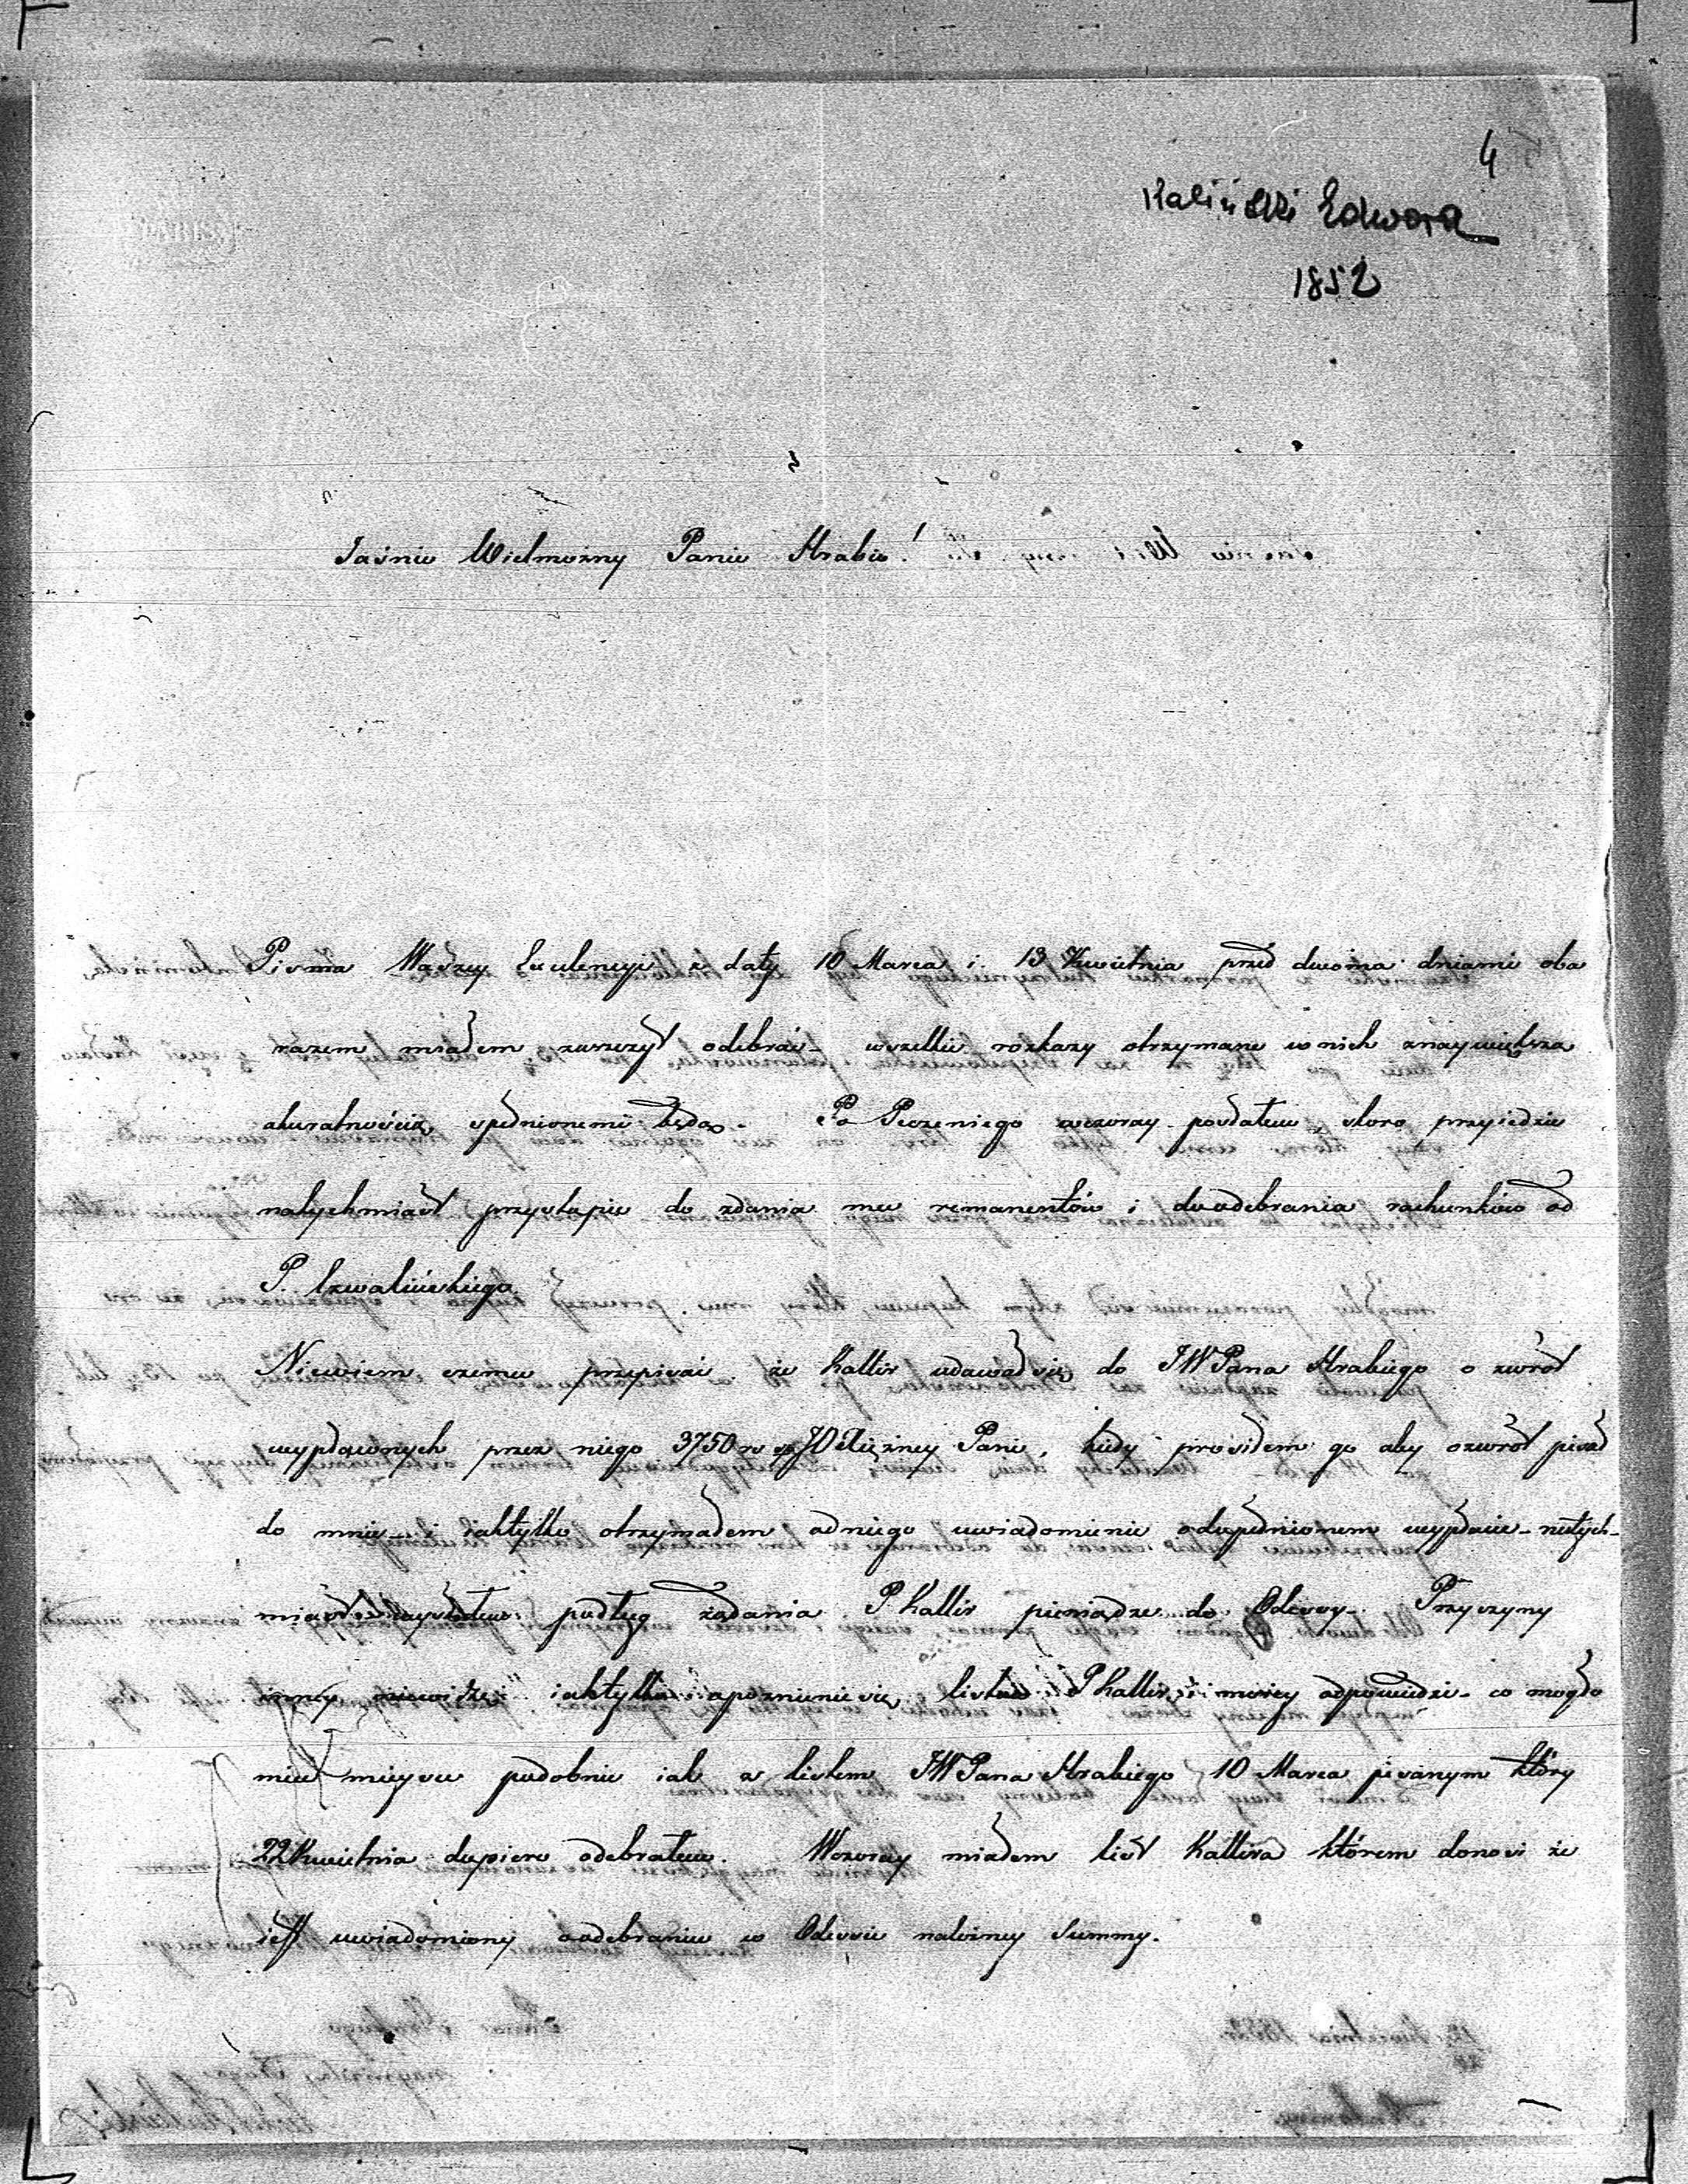 4
Kaliński Edward
1852
Jaśnie Wielmożny Panie Hrabio!
Pisma Waszey Exulencyi z daty 10 Marca i 13 Kwietnia przed dwoma dniami oba
razem miałem zaszczyt odebrać - wszelkie rozkazy otrzymane w nich znaywiększą
akuratnością spełnionemi będą. Po Peczeniego wczoray posłałem, skoro przyiedzie
natychmiast przystąpię do zdania mu remanentów i do odebrania rachunków od
P.
Niewiem czemu przypisać że Kallir udawał się do JW Pana Hrabiego o zwrót
wypłaconych przez niego 3750 rs JO Xiężney Pani, kiedy prosiłem go aby o zwrót pisał
do mnie - i iaktylko otrzymałem od niego uwiadomienie o dopełnionem wypłacie - natych-
miast wysłałem podług żądania P Kallir pieniądze do Odessy - Przyczyny
inney niewidzę iaktylko opoznienie się listów P Kallir i moiey odpowiedzi - co mogło
mieć mieysce podobnie iak z listem JW Pana Hrabiego 10 Marca pisanym który
22 Kwietnia dopiero odebrałem. Wczoray miałem list Kallira którem donosi że
iest uwiadomiony o odebraniu w Odessie należney Summy.